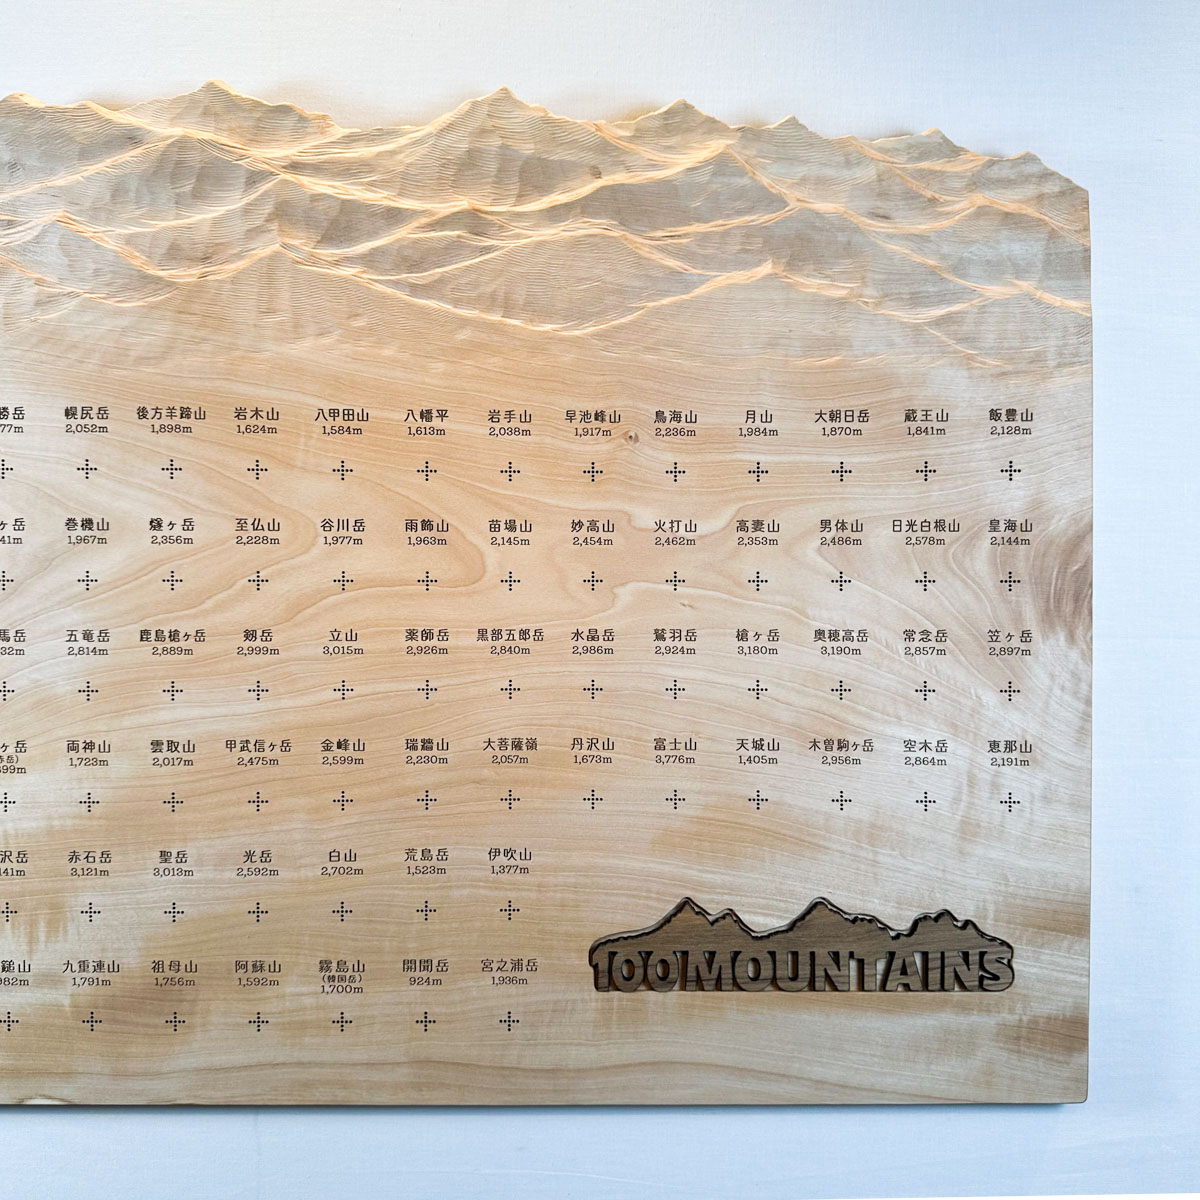 勝岳 幌尻岳 後方羊蹄山 岩木山 八甲田山 八幡平 岩手山 早池峰山 鳥海山 月山 大朝日岳 蔵王山 飯豊山
77m 2,052m 1,898m 1,624m 1,584m 1,613m 2,038m 1,917m 2,236m 1,984m 1,870m 1,841m 2,128m
ヶ岳 巻機山 燧ヶ岳 至仏山 谷川岳 雨飾山 苗場山 妙高山 火打山 高妻山 男体山 日光白根山 皇海山
41m 1,967m 2,356m 2,228m 1,977m 1,963m 2,145m 2,454m 2,462m 2,353m 2,486m 2,578m 2,144m
馬岳 五竜岳 鹿島槍ヶ岳 剱岳 立山 薬師岳 黒部五郎岳 水晶岳 鷲羽岳 槍ヶ岳 奥穂高岳 常念岳 笠ヶ岳
32m 2,814m 2,889m 2,999m 3,015m 2,926m 2,840m 2,986m 2,924m 3,180m 3,190m 2,857m 2,897m
ヶ岳 両神山 雲取山 甲武信ヶ岳 金峰山 瑞牆山 大菩薩嶺 丹沢山 富士山 天城山 木曽駒ヶ岳 空木岳 恵那山
赤岳)
899m 1,723m 2,017m 2,475m 2,599m 2,230m 2,057m 1,673m 3,776m 1,405m 2,956m 2,864m 2,191m
沢岳 赤石岳 聖岳 光岳 白山 荒島岳 伊吹山
141m 3,121m 3,013m 2,592m 2,702m 1,523m 1,377m
鎚山 九重連山 祖母山 阿蘇山 霧島山 開聞岳 宮之浦岳
(韓国岳)
982m 1,791m 1,756m 1,592m 1,700m 924m 1,936m
100MOUNTAINS